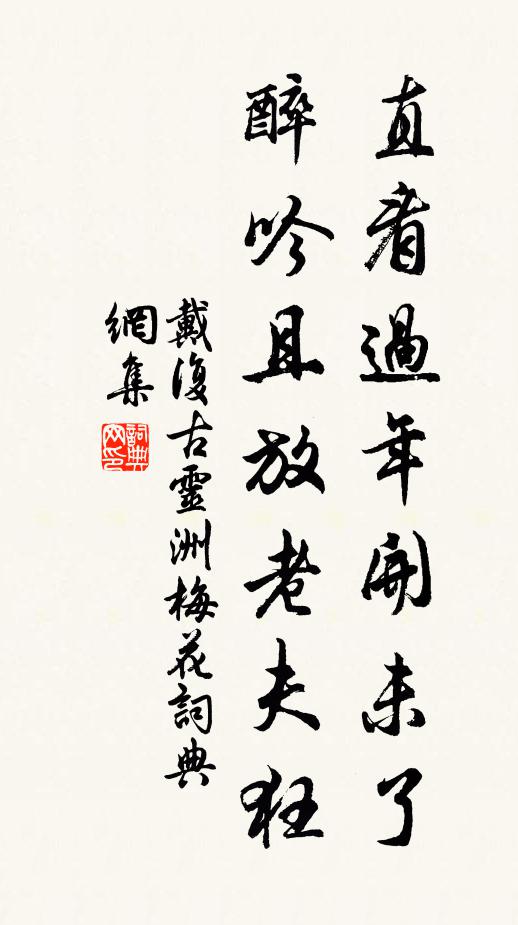 直看過年開未了
醉吟且放老夫狂
戴復古靈洲梅花詞典
網集
詞典
网印